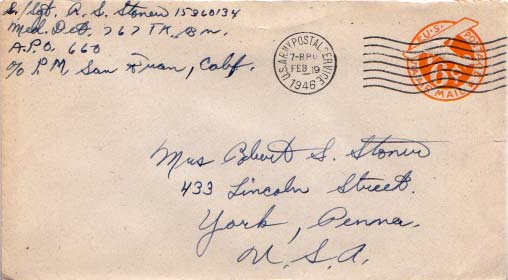 S/Sgt. A. S. Stoner 15360134
Med. Det. 767 TK. Bn.
A.P.O. 660
c/o P.M. San Fran, Calf.
U.S. ARMY POSTAL SERVICE
FEB 19
1946
U.S. POSTAGE
6¢
AIR MAIL
Mrs Robert S. Stoner
433 Lincoln Street.
York, Penna.
U. S. A.